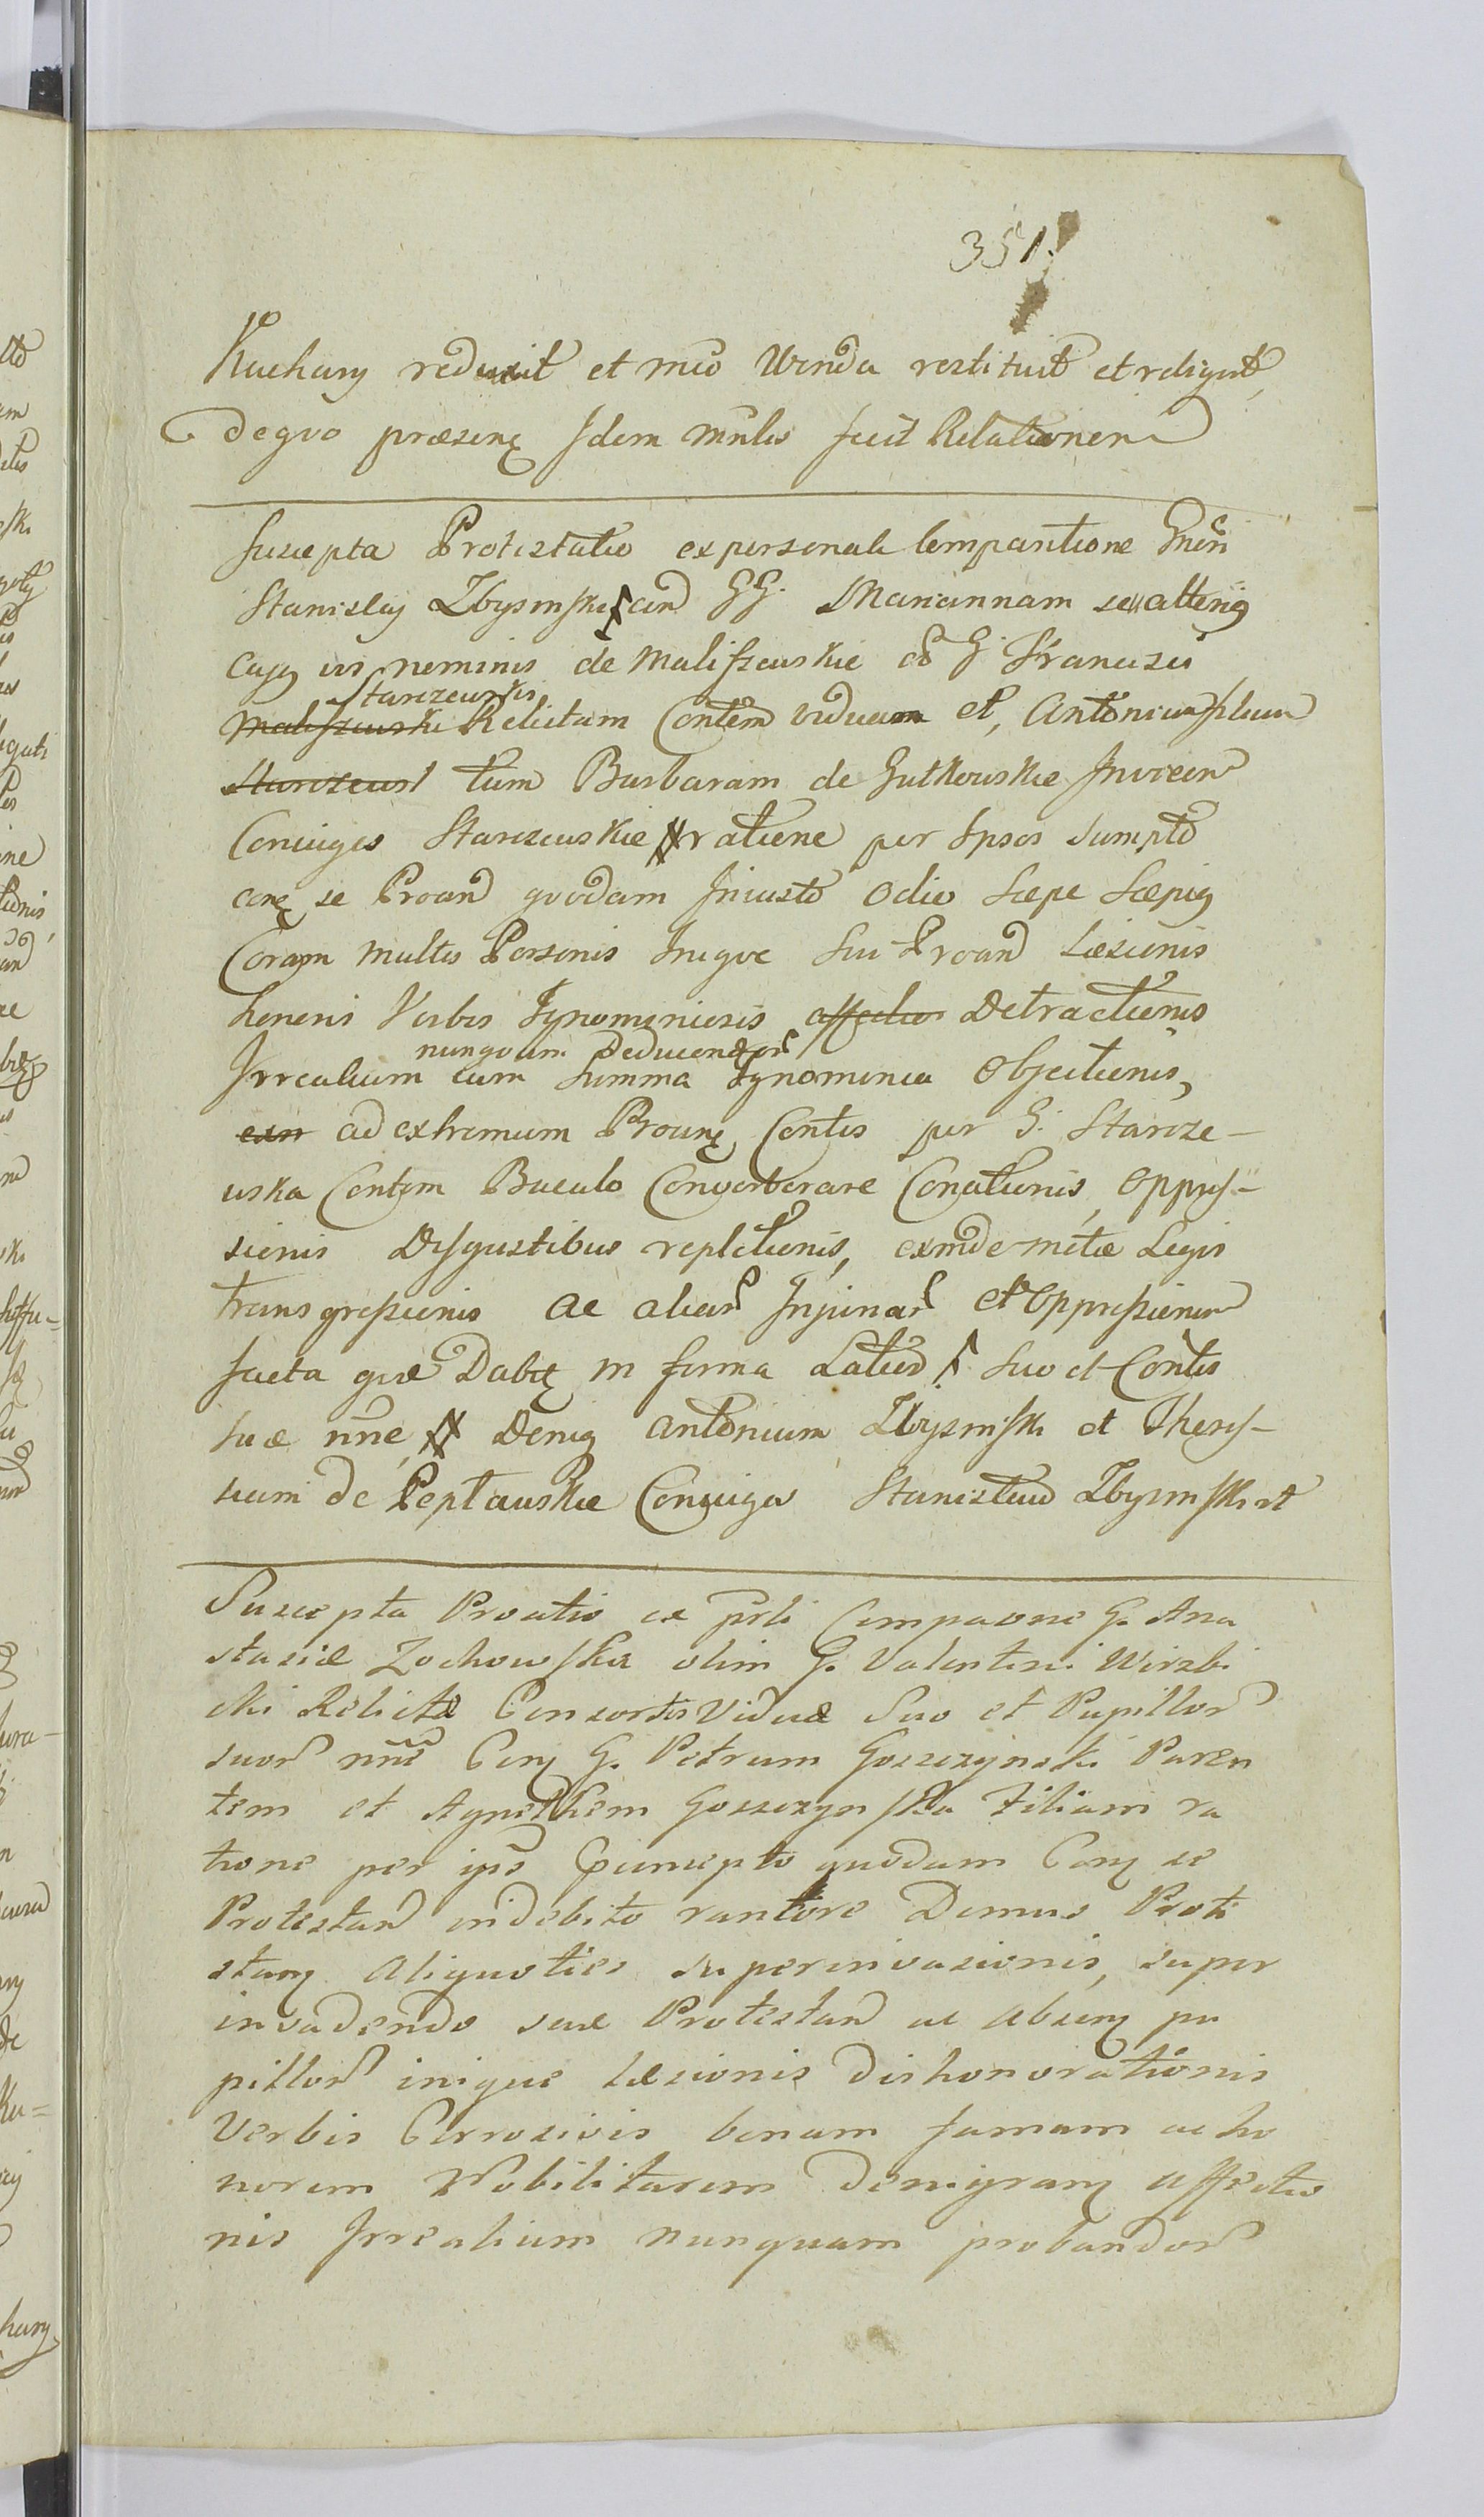 351.
Kuchary reduxit et mco Wenda restituit et religvit,
de qvo præsens Idem Mnlis fecit Relationem
Suscepta Protestatio ex personali Comparitione Gnēri
Stanislaj Zbysinski can GG. Mariannam seu alterig
cujg vis neminis de Maliszewskie ol G. Francisci
Starczewskis
Maliszewski Relictam Contem viduam et, Antonium filium
Starczewsl tum Barbaram de Gutkowskie Invicem
Coniuges Starczewskie ratione per Ipsos sumpto
con se Proand qvodam Iniusto odio Sæpe Sæpig
Coram multis Personis Iniqve Sui Proand Læsionis
honeris Verbis Ignominiosis affectio Detractionis
nunqvam Deducendor
Irrealium cum Summa Ignominia Objectionis,
exn ad extremum Proang Contis per G. Starcze-
wska Contem Baculo Converberare Conationis, oppres-
sionis Disgustibus repletionis, exinde metæ Legis
transgressionis ac aliar Injuriar et oppressionum
facta qvæ Dabit in forma Latior Suo et Contis
suæ nne, Denig Antonium Zbysinski et Theres-
siam de Peptawskie Coniuges Stanislaud Zbysinski et
Suscepta Proatio ex prli Compaone G. Ana
stasiæ Zochowska olim G. Valentini Wirzbi
cki Relictæ Consortis Viduæ Suo et Pupillor
suor nne Con G. Petrum Goszczynski Paren
tem et Agnethem Goszczynska Filiam ra
tione per ips sumpto quodam Con se
Protestand indebito rantore Domus Prote
stan Aliquoties superinvasionis, super
invadendo suæ Protestand ac absen pu
pillor inique læsionis dishonorationis
Verbis Corrosivis bonam famam ac ho
norem Nobilitarem denigran affectio
nis Irrealium nunquam probandor